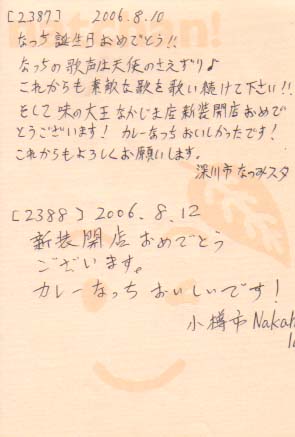 [2387] 2006.8.10
なっち誕生日おめでとう!!
なっちの歌声は天使のさえずり♪
これからも素敵な歌を歌い続けて下さい!!
そして味の大王なかじま店新装開店おめで
とうございます! カレーなっちおいしかったです!
これからもよろしくお願いします。
深川市 なつみスタ
[2388] 2006.8.12
新装開店おめでとう
ございます。
カレーなっちおいしいです!
小樽市 Nakah